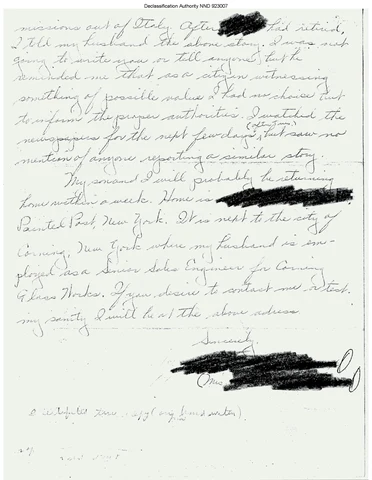 Declassification Authority NND 923007
missions out of Italy. After had retired,
I told my husband the above story. I was not
going to write you or tell anyone, but he
reminded me that as a citizen witnessing
something of possible value I had no choice but
to inform the proper authorities. I watched the
newspapers for the next few days, but saw no
mention of anyone reporting a similar story.
My son and I will probably be returning
home within a week. Home is
Painted Post, New York. It is next to the city of
Corning, New York where my husband is em-
ployed as a Senior Sales Engineer for Corning
Glass Works. If you desire to contact me or test
my sanity I will be at the above adress.
Sincerely,
Mrs